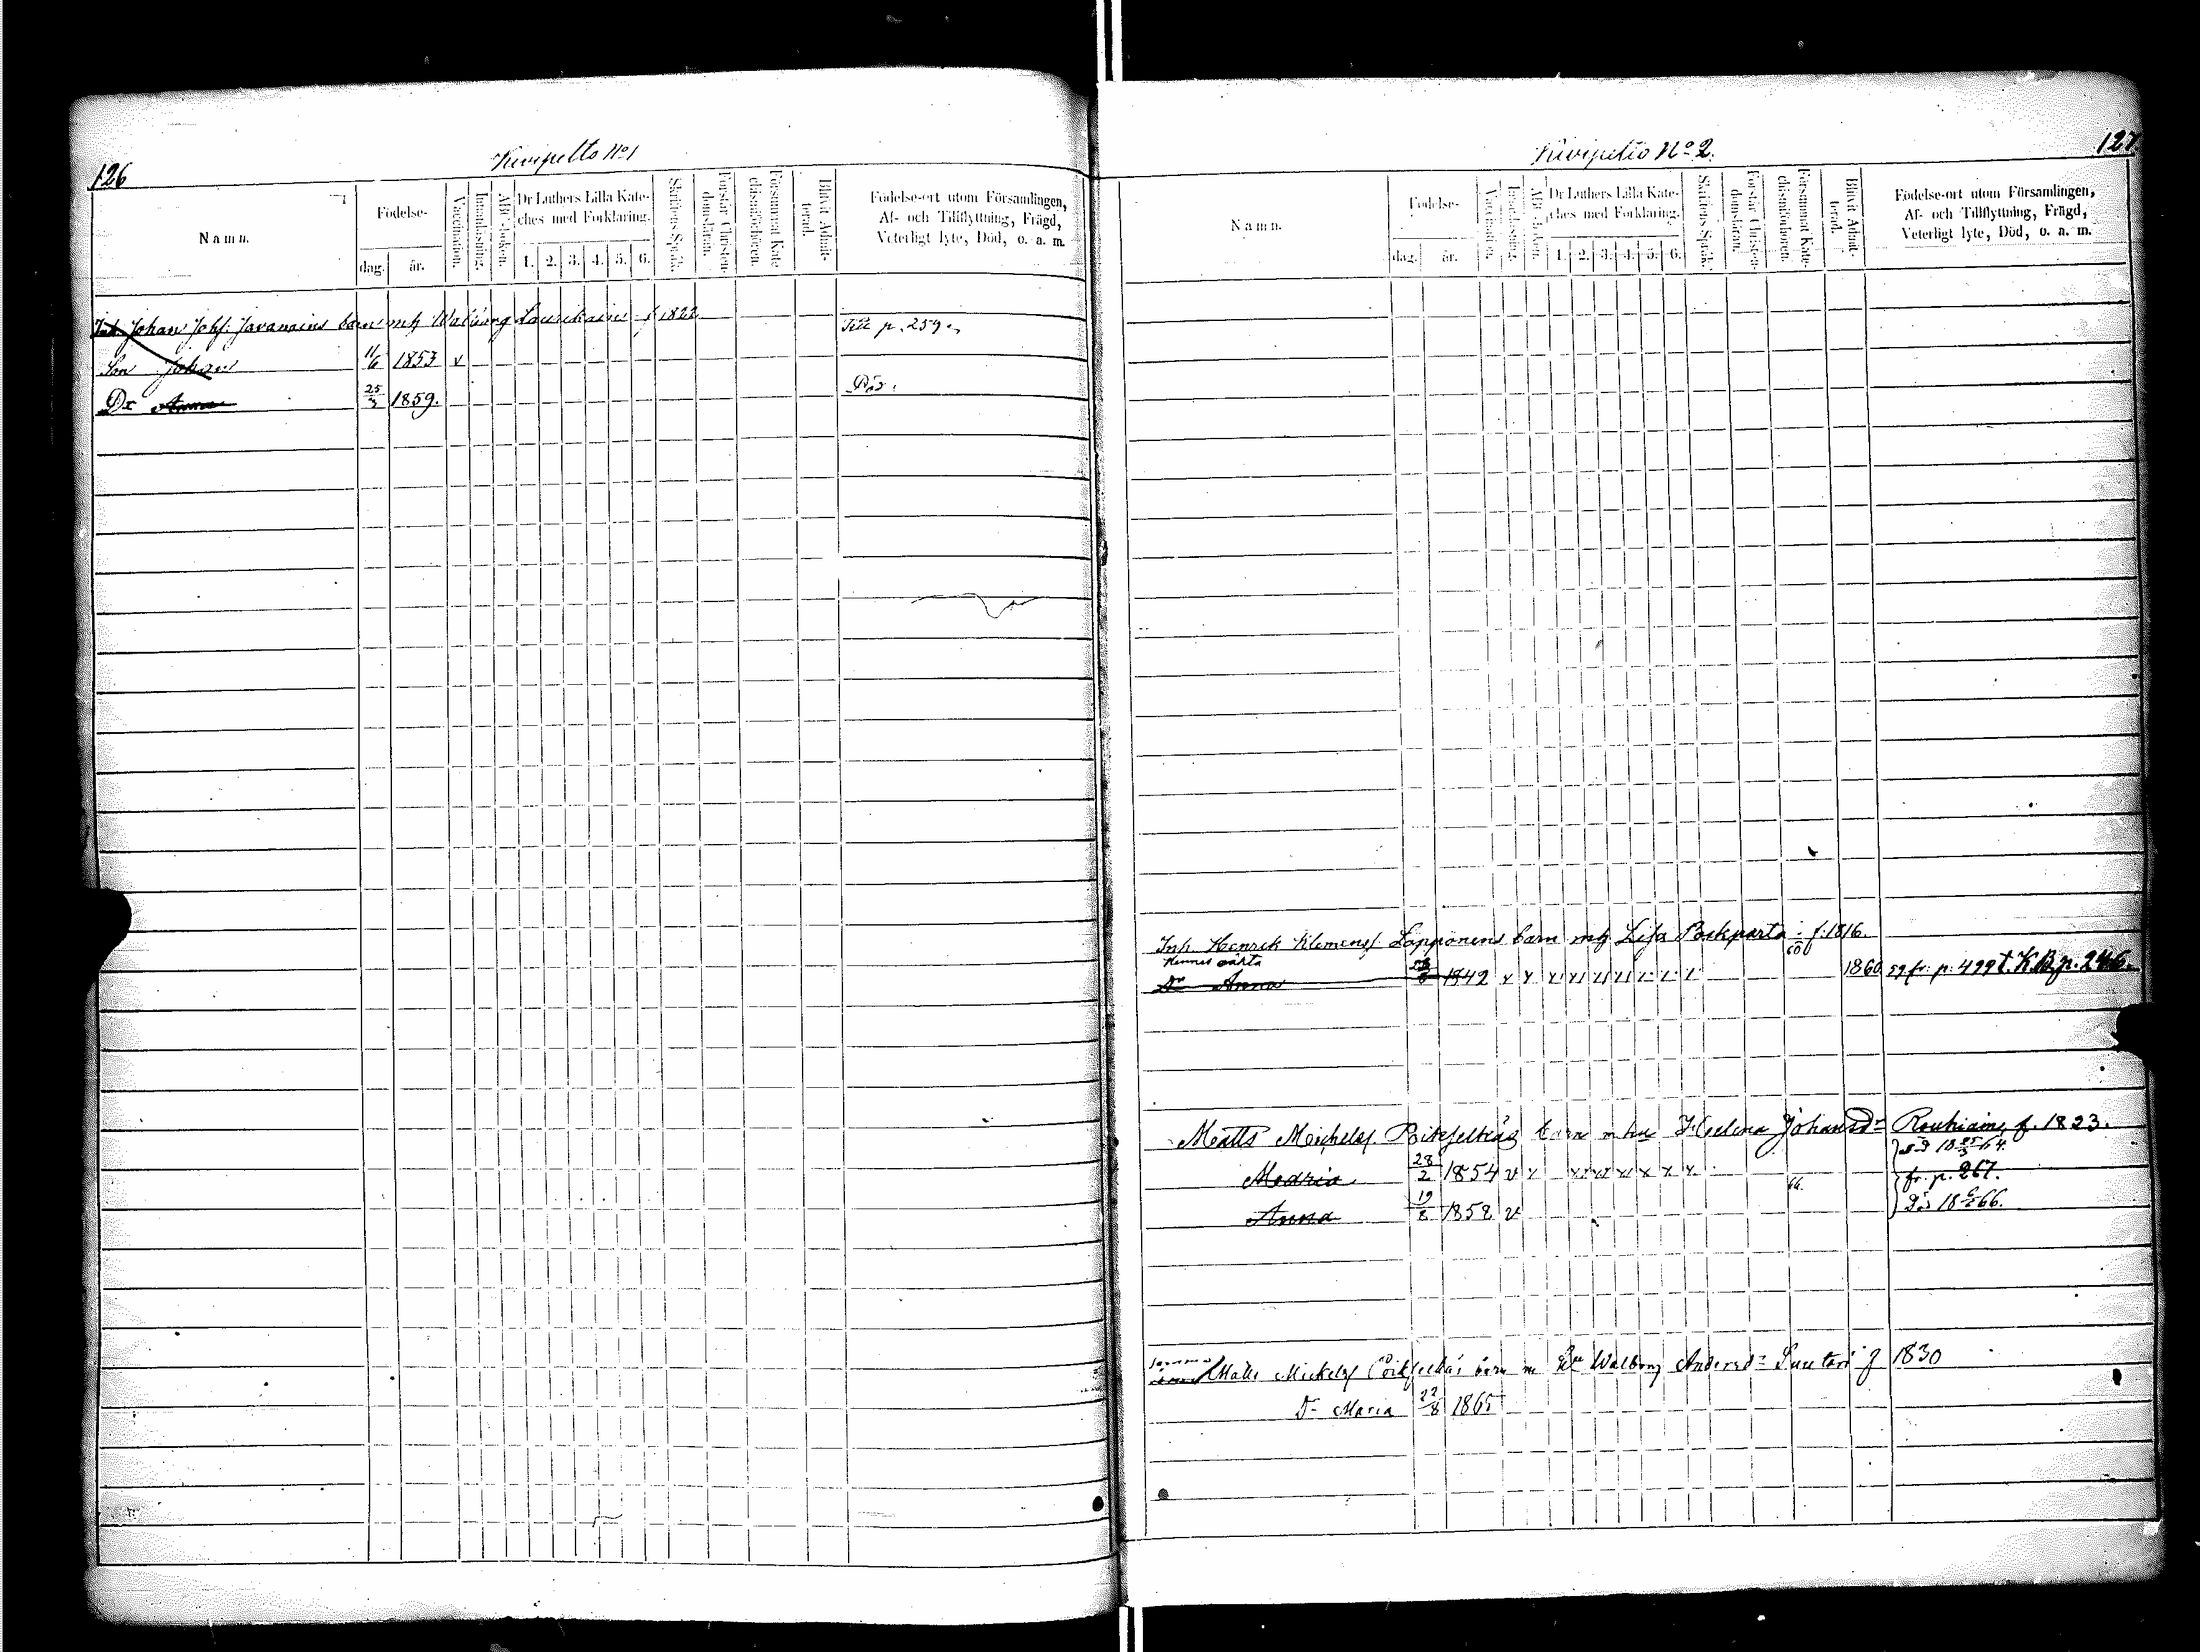 126
Kivipelto No 1
Namn.
Födelse-
dag.
år.
Vaccination.
Innanläsning.
ABC-boken.
Dr Luthers Lilla Kate-
ches med Förklaring.
1. 2. 3. 4. 5. 6.
Skriftens Språk.
Förstår Christen-
domsläran.
Försummat Kate-
chismiförhören.
Blifvit Admit-
terad.
Födelse-ort utom Församlingen,
Af- och Tillflyttning, Frägd,
Veterligt lyte, Död, o. a. m.
Inh. Johan Johs. Javanains barn mh Walborg Laurikain f 1822 Till p. 259
Son Johan 11/6 1853 v
Dr Anna 25/3 1859. Död.
127
Kivipelto No 2.
Namn.
Födelse-
dag.
år.
Vaccination.
Innanläsning.
ABC-boken.
Dr Luthers Lilla Kate-
ches med Förklaring.
1. 2. 3. 4. 5. 6.
Skriftens Språk.
Förstår Christen-
domsläran.
Försummat Kate-
chismiförhören.
Blifvit Admit-
terad.
Födelse-ort utom Församlingen,
Af- och Tillflyttning, Frägd,
Veterligt lyte, Död, o. a. m.
Inh. Henrik Klemens Lapponens barn mh Lisa f. 1816.
Hennes oäkta 60
Dr Anna 1842 1860 fr. p. 499 t. K.B. p. 246.
Matts Michels barn m hu Helena Johansdr Rouhiain f. 1823.
Maria 28/2 1854 v fr. p. 267.
66.
Anna 19/8 1858 v Död 18 66.
Matts Mickels barn m Hu Walborg Andersdr Suutari f 1830
Dr Maria 22/8 1865